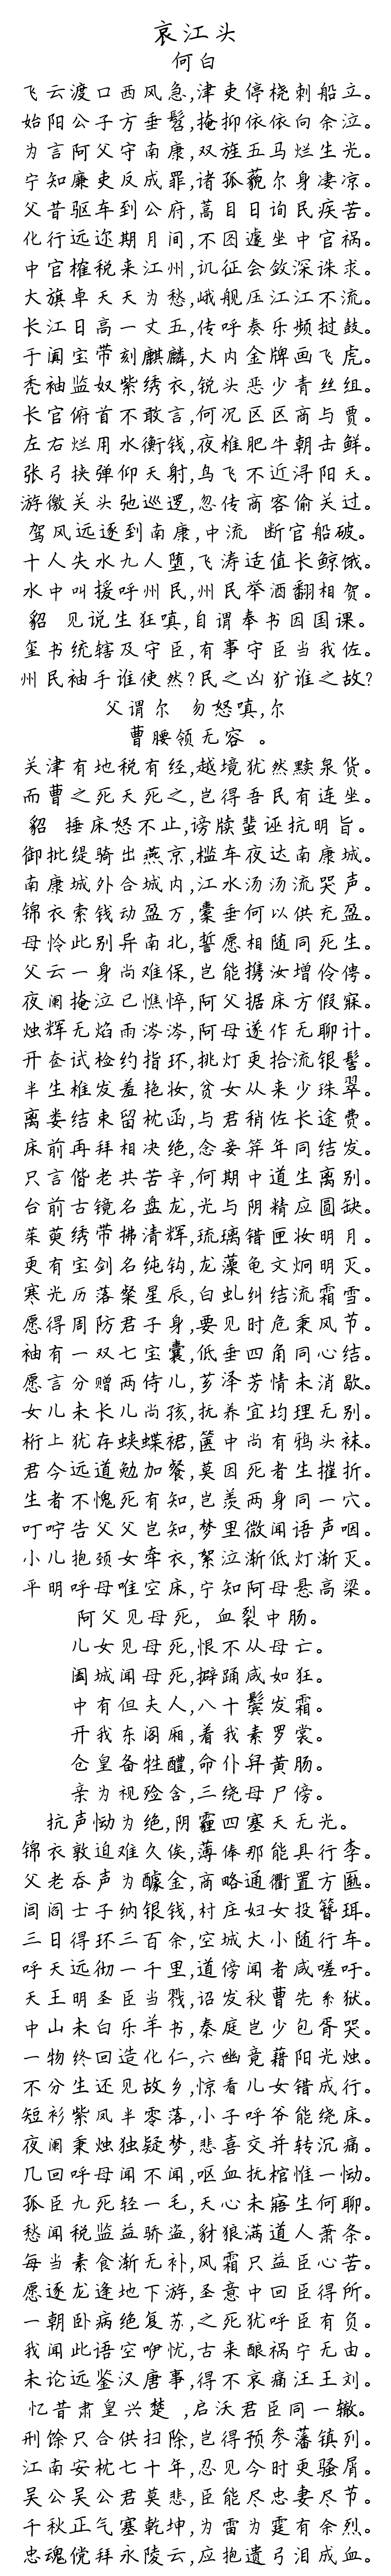 哀江头
何白
飞云渡口西风急,津吏停桡刺船立。
始阳公子方垂髫,掩抑依依向余泣。
为言阿父守南康,双旌五马烂生光。
宁知廉吏反成罪,诸孤藐尔身凄凉。
父昔驱车到公府,蒿目日询民疾苦。
化行远迩期月间,不图遽坐中官祸。
中官榷税来江州,讥征会敛深诛求。
大旗卓天天为愁,峨舰压江江不流。
长江日高一丈五,传呼奏乐频挝鼓。
于阗宝带刻麒麟,大内金牌画飞虎。
秃袖监奴紫绣衣,锐头恶少青丝组。
长官俯首不敢言,何况区区商与贾。
左右烂用水衡钱,夜椎肥牛朝击鲜。
张弓挟弹仰天射,鸟飞不近浔阳天。
游徼关头弛巡逻,忽传商客偷关过。
驾风远逐到南康,中流 断官船破。
十人失水九人堕,飞涛适值长鲸饿。
水中叫援呼州民,州民举酒翻相贺。
貂 见说生狂嗔,自谓奉书因国课。
玺书统辖及守臣,有事守臣当我佐。
州民袖手谁使然?民之凶犷谁之故?
父谓尔 勿怒嗔,尔
曹腰领无容 。
关津有地税有经,越境犹然黩泉货。
而曹之死天死之,岂得吾民有连坐。
貂 捶床怒不止,谤牍蜚诬抗明旨。
御批缇骑出燕京,槛车夜达南康城。
南康城外合城内,江水汤汤流哭声。
锦衣索钱动盈万,囊垂何以供充盈。
母怜此别异南北,誓愿相随同死生。
父云一身尚难保,岂能携汝增伶俜。
夜阑掩泣已憔悴,阿父据床方假寐。
烛辉无焰雨涔涔,阿母遂作无聊计。
开奁试检约指环,挑灯更拾流银髻。
半生椎发羞艳妆,贫女从来少珠翠。
离娄结束留枕函,与君稍佐长途费。
床前再拜相决绝,念妾笄年同结发。
只言偕老共苦辛,何期中道生离别。
台前古镜名盘龙,光与阴精应圆缺。
茱萸绣带拂清辉,琉璃错匣妆明月。
更有宝剑名纯钩,龙藻龟文炯明灭。
寒光历落粲星辰,白虬纠结流霜雪。
愿得周防君子身,要见时危秉风节。
袖有一双七宝囊,低垂四角同心结。
愿言分赠两侍儿,芗泽芳情未消歇。
女儿未长儿尚孩,抚养宜均理无别。
桁上犹存蛱蝶裙,箧中尚有鸦头袜。
君今远道勉加餐,莫因死者生摧折。
生者不愧死有知,岂羡两身同一穴。
叮咛告父父岂知,梦里微闻语声咽。
小儿抱颈女牵衣,絮泣渐低灯渐灭。
平明呼母唯空床,宁知阿母悬高梁。
阿父见母死, 血裂中肠。
儿女见母死,恨不从母亡。
阖城闻母死,擗踊咸如狂。
中有但夫人,八十鬓发霜。
开我东阁厢,着我素罗裳。
仓皇备牲醴,命仆舁黄肠。
亲为视殓含,三绕母尸傍。
抗声恸为绝,阴霾四塞天无光。
锦衣敦迫难久俟,薄俸那能具行李。
父老吞声为醵金,商略通衢置方匦。
闾阎士子纳银钱,村庄妇女投簪珥。
三日得环三百余,空城大小随行车。
呼天远彻一千里,道傍闻者咸嗟吁。
天王明圣臣当戮,诏发秋曹先系狱。
中山未白乐羊书,秦庭岂少包胥哭。
一物终回造化仁,六幽竟藉阳光烛。
不分生还见故乡,惊看儿女错成行。
短衫紫凤半零落,小子呼爷能绕床。
夜阑秉烛独疑梦,悲喜交并转沉痛。
几回呼母闻不闻,呕血抚棺惟一恸。
孤臣九死轻一毛,天心未寤生何聊。
愁闻税监益骄盗,豺狼满道人萧条。
每当素食渐无补,风霜只益臣心苦。
愿逐龙逄地下游,圣意中回臣得所。
一朝卧病绝复苏,之死犹呼臣有负。
我闻此语空咿忧,古来酿祸宁无由。
未论远鉴汉唐事,得不哀痛汪王刘。
忆昔肃皇兴楚 ,启沃君臣同一辙。
刑馀只合供扫除,岂得预参藩镇列。
江南安枕七十年,忍见今时更骚屑。
吴公吴公君莫悲,臣能尽忠妻尽节。
千秋正气塞乾坤,为雷为霆有余烈。
忠魂傥拜永陵云,应抱遗弓泪成血。